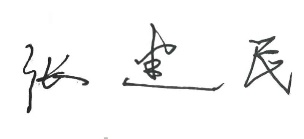 张建民